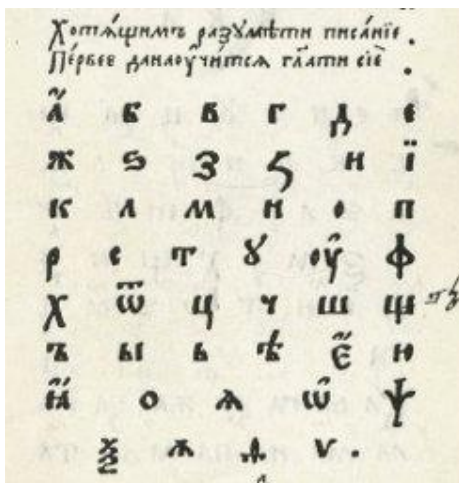 Хотѧ́щимъ разꙋмѣ́ти писа́нїе .
Пе́рвее да наоу҆чи́тсѧ гл҃ати сїѐ .
А҆̀ Б В Г Д Є
Ж Ѕ З Ꙁ И Ї
К Л М Н О П
Р С Т Ꙋ Оу҆ Ф
Х Ѿ Ц Ч Ш Щ
Ъ Ы Ь Ѣ Е Ю
Ꙗ Ѻ Ѧ Ѡ Ѱ
Ѯ Ѧ Ѳ Ѵ .